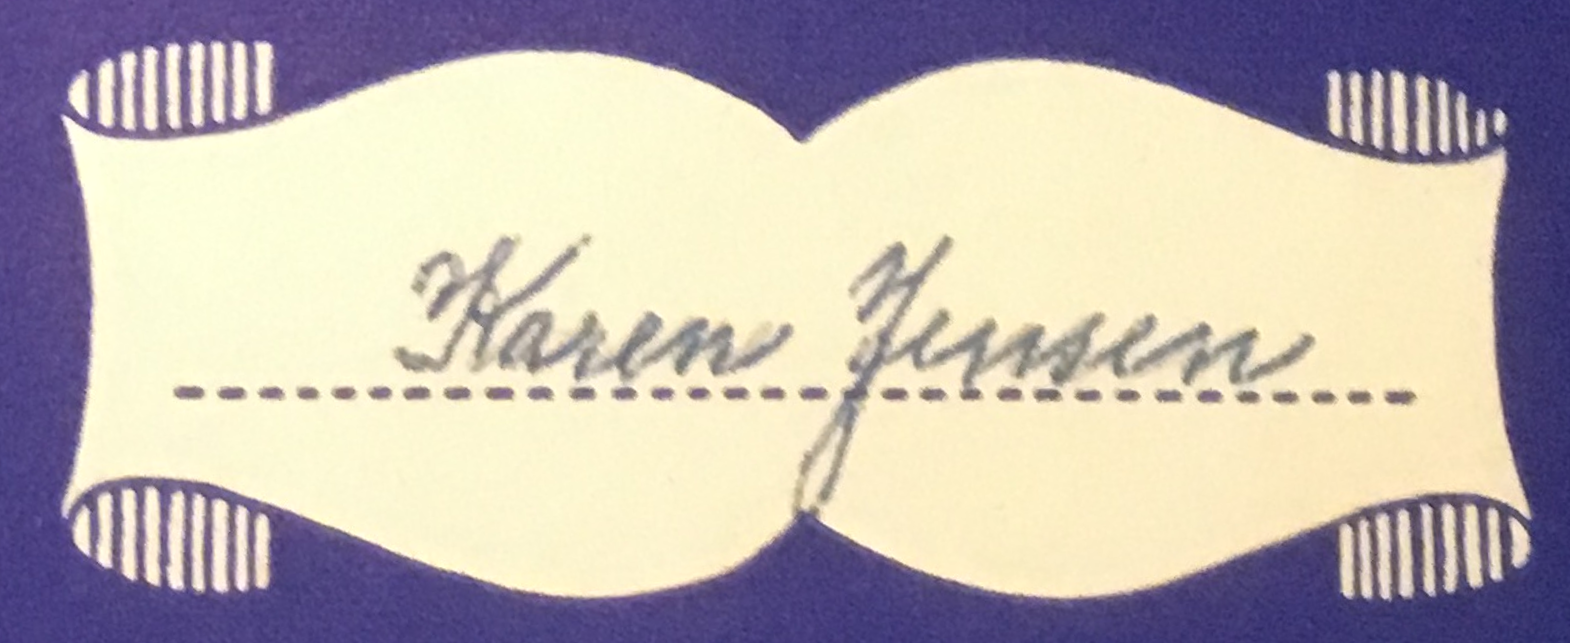 Karen Jensen